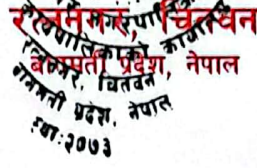 रत्ननगर, चितवन
बागमती प्रदेश, नेपाल
नगरपालिकाको कार्यालय
रत्ननगर, चितवन
बागमती प्रदेश, नेपाल
स्था: २०७३